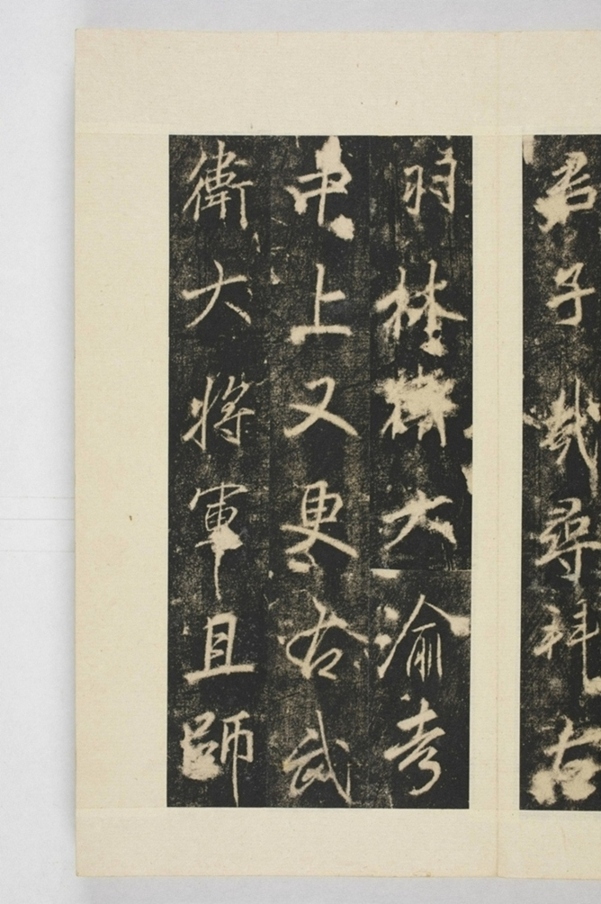 君子哉尋拜右
羽林衛大渝考
中上又更右武
衛大將軍且師